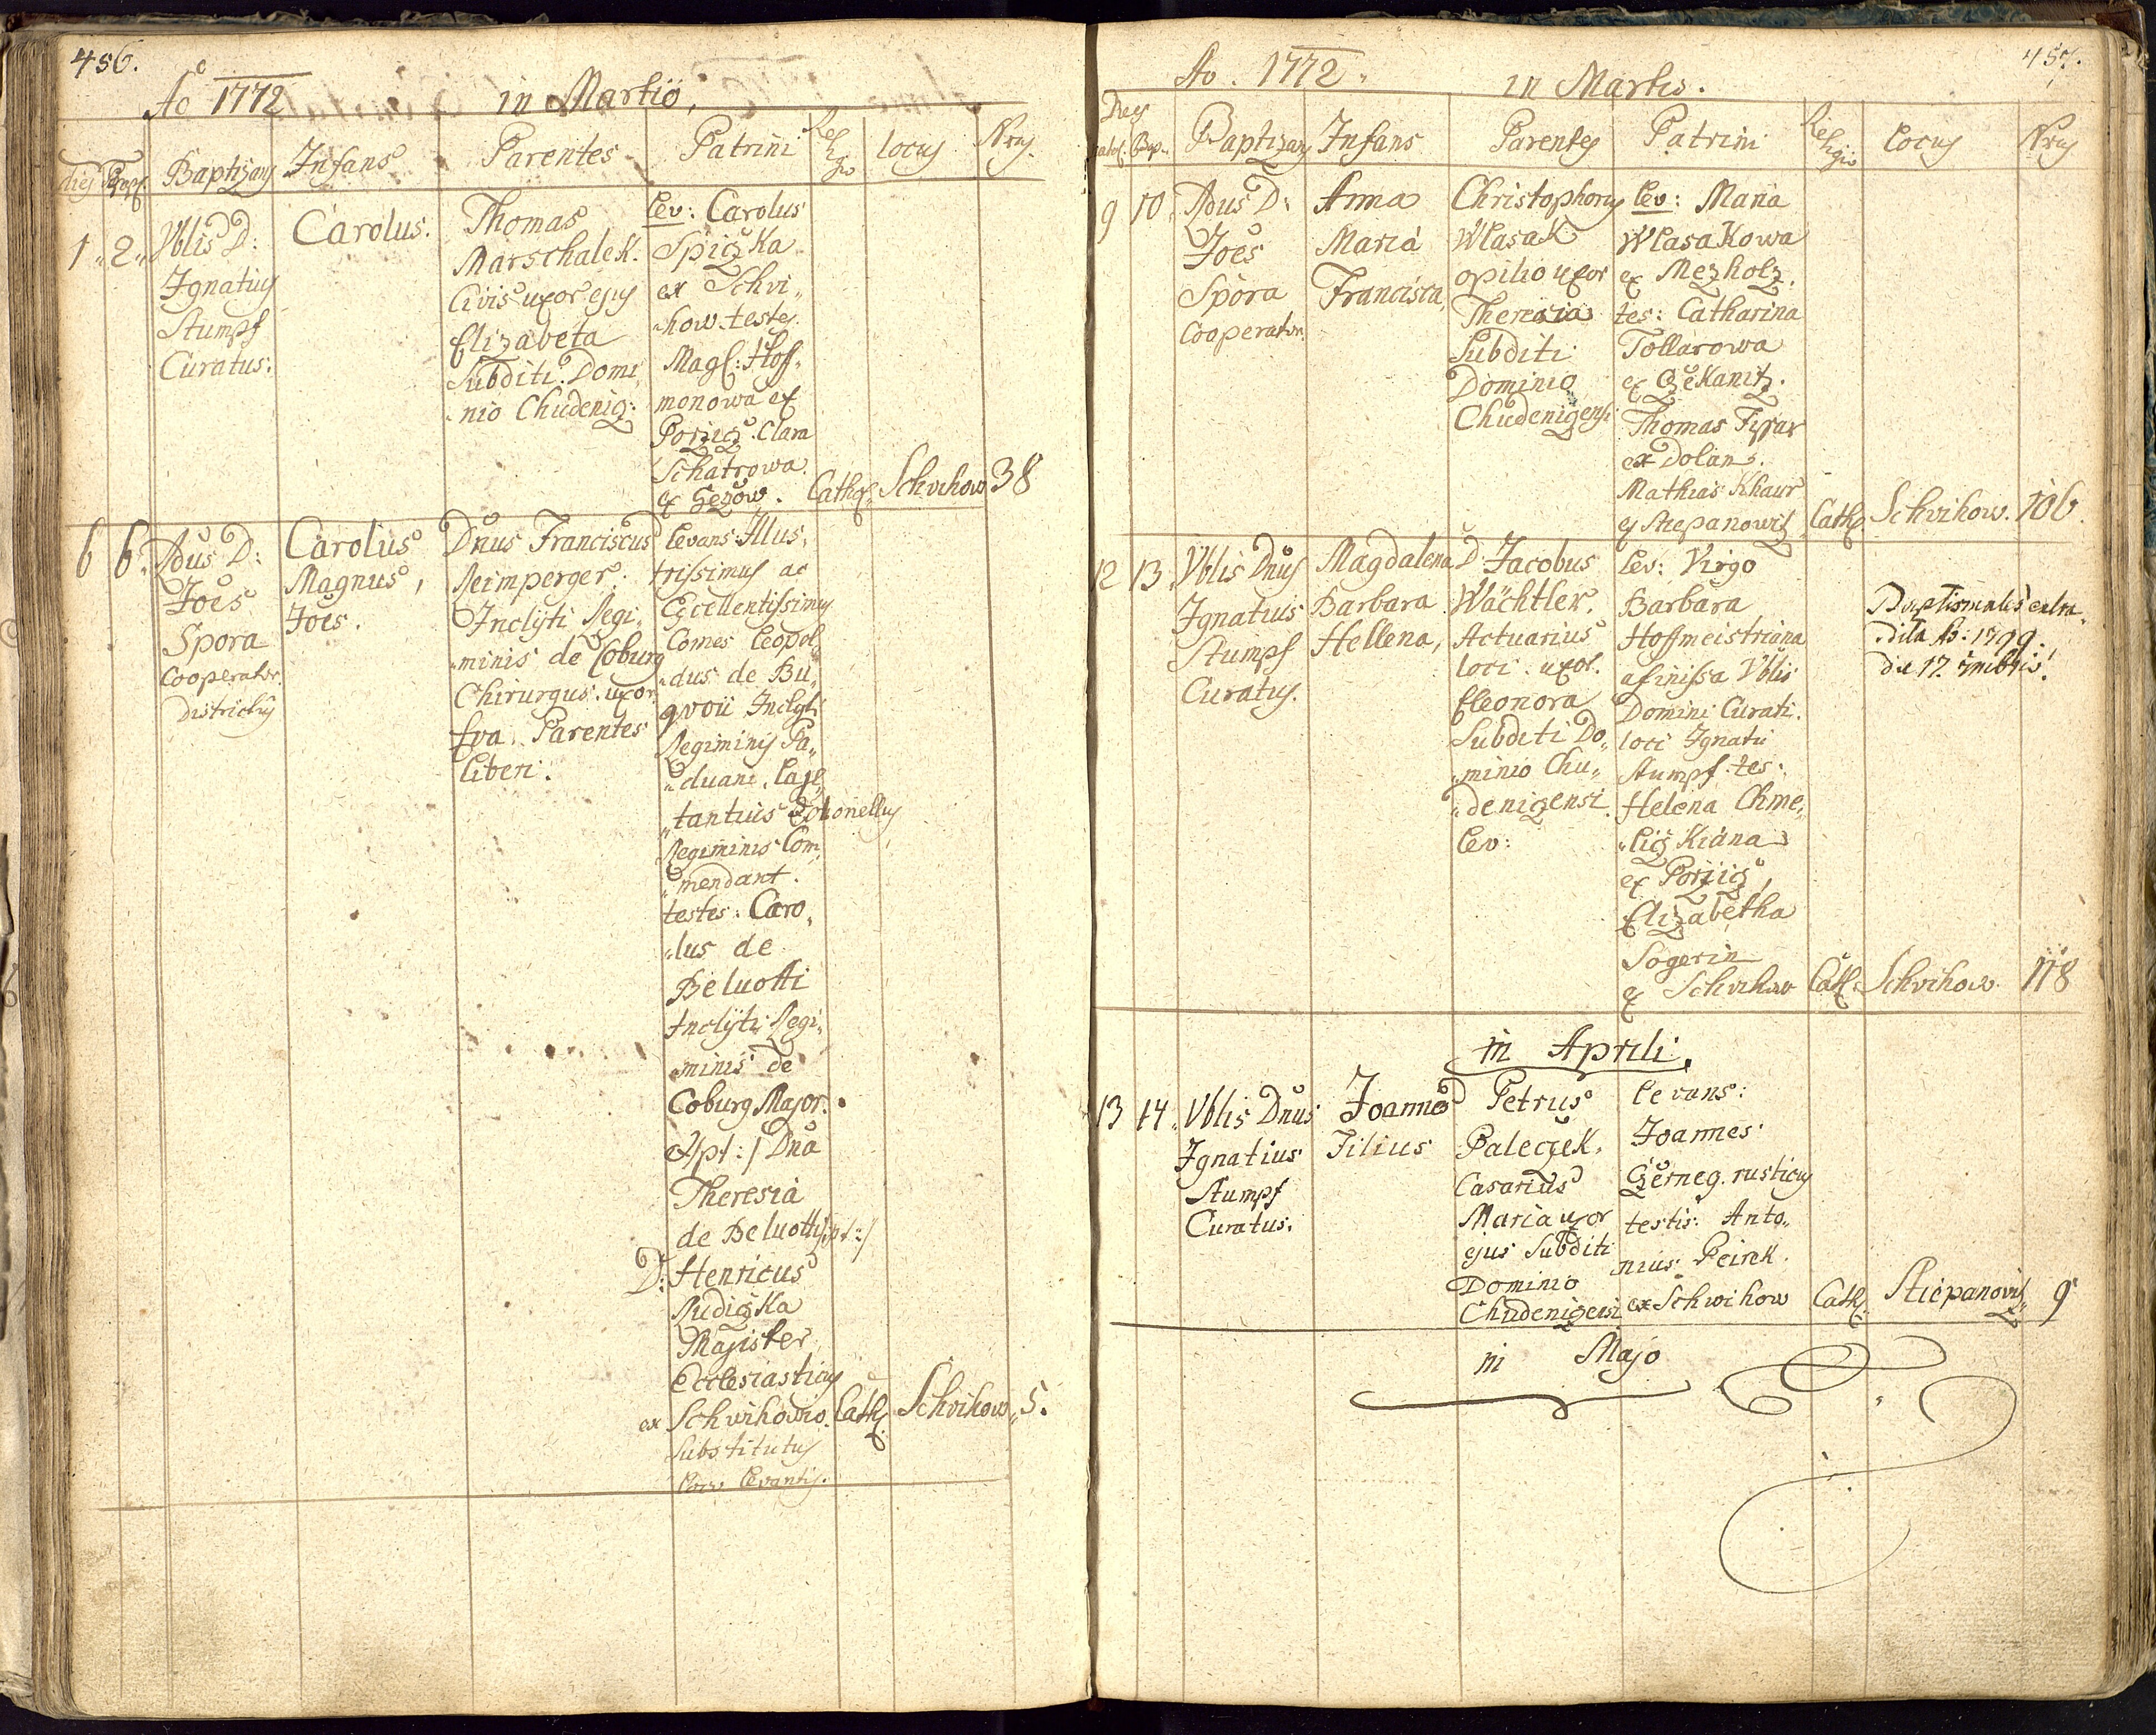 456.
Ao 1772 in Martio,
dies Bapt. Baptizans Infans Parentes Patrini Religio locus Nrus
1 2 Vblis D:
Ignatius
Stumpf
Curatus.
Carolus.
Thomas
Marschalek.
Civis uxor ejus
Elizabeta
Subditi Domi,
nio Chudenig:
Lev: Carolus
SpiczKa
ex Schvi,
how. testes
Magl: Hoff,
monowa ex
Porzicz. Clara
Schatrowa
ex Gezow.
Cath. Schvihow 38
6 6. Adus D:
Joes
Spora
Cooperator.
Districtus
Carolus
Magnus,
Joes.
Dnus Franciscus
Reimperger.
Inclyti Regi,
minis de Coburg
Chirurgus. uxor
Eva. Parentes
liberi.
levans: Illus,
trissimus ac
Excellentissimus
Comes Leopol,
dus de Bu,
qvoii Inclyti
Regiminis Pa,
duani
tantuis Colonellus
Regiminis Com,
mendant.
testes: Caro,
lus de
Beluotti
Inclyti Regi,
minis de
Coburg Major.
/pt:/ Dna
Theresia
de Beluotti /pt:/
D: Henricus
RudiczKa
Magister
Ecclesiasticus
ex Schwihowio.
Substitutus
Loco Levantis.
Cath. Schvihow 5.
457.
Ao. 1772. in Martio.
Dies
natus. Bap. Baptizans Infans Parentes Patrini Religio Locus Nrus
9 10. Adus D:
Joes
Spora
Cooperator.
Anna
Maria
Francisca,
Christophorus
Wlasak
opilio uxor
Theresia
Subditi
Dominio
Chudenigensi
Lev: Maria
WlasaKowa
ex Mezholz.
tes: Catharina
Tollarowa
ex CzeKanitz.
Thomas
ex Dolan.
Mathias
ex Stepanowitz
Cath. Schvihow. 106.
12 13. Vblis Dnus
Ignatius
Stumpf
Curatus.
Magdalena
Barbara
Hellena,
D: Jacobus
Wächtler.
Actuarius
loci. uxor.
Eleonora
Subditi Do,
minio Chu,
denigensi.
lev:
Lev: Virgo
Barbara
Hoffmeistriana
afinissa Vblis
Domini Curati.
loci Ignatii
Stumpf. tes:
Helena Chme,
liczKiana
ex Porzicz,
Elizabetha
Sogerin
ex Schvihow
Baptismales extra,
dita Ao: 1799.
die 17.
Cath. Schvihow 118
in Aprili.
13 14. Vblis Dnus
Ignatius
Stumpf
Curatus.
Joannes
Filius
Petrus
Paleczek.
Casarius
Maria uxor
ejus Subditi
Dominio
Chudenigensi
levans:
Joannes
Czerneg. rusticus
testis: Anto,
nius Peirek.
ex Schwihow
Cath. Stiepanovitz 9
in Majo